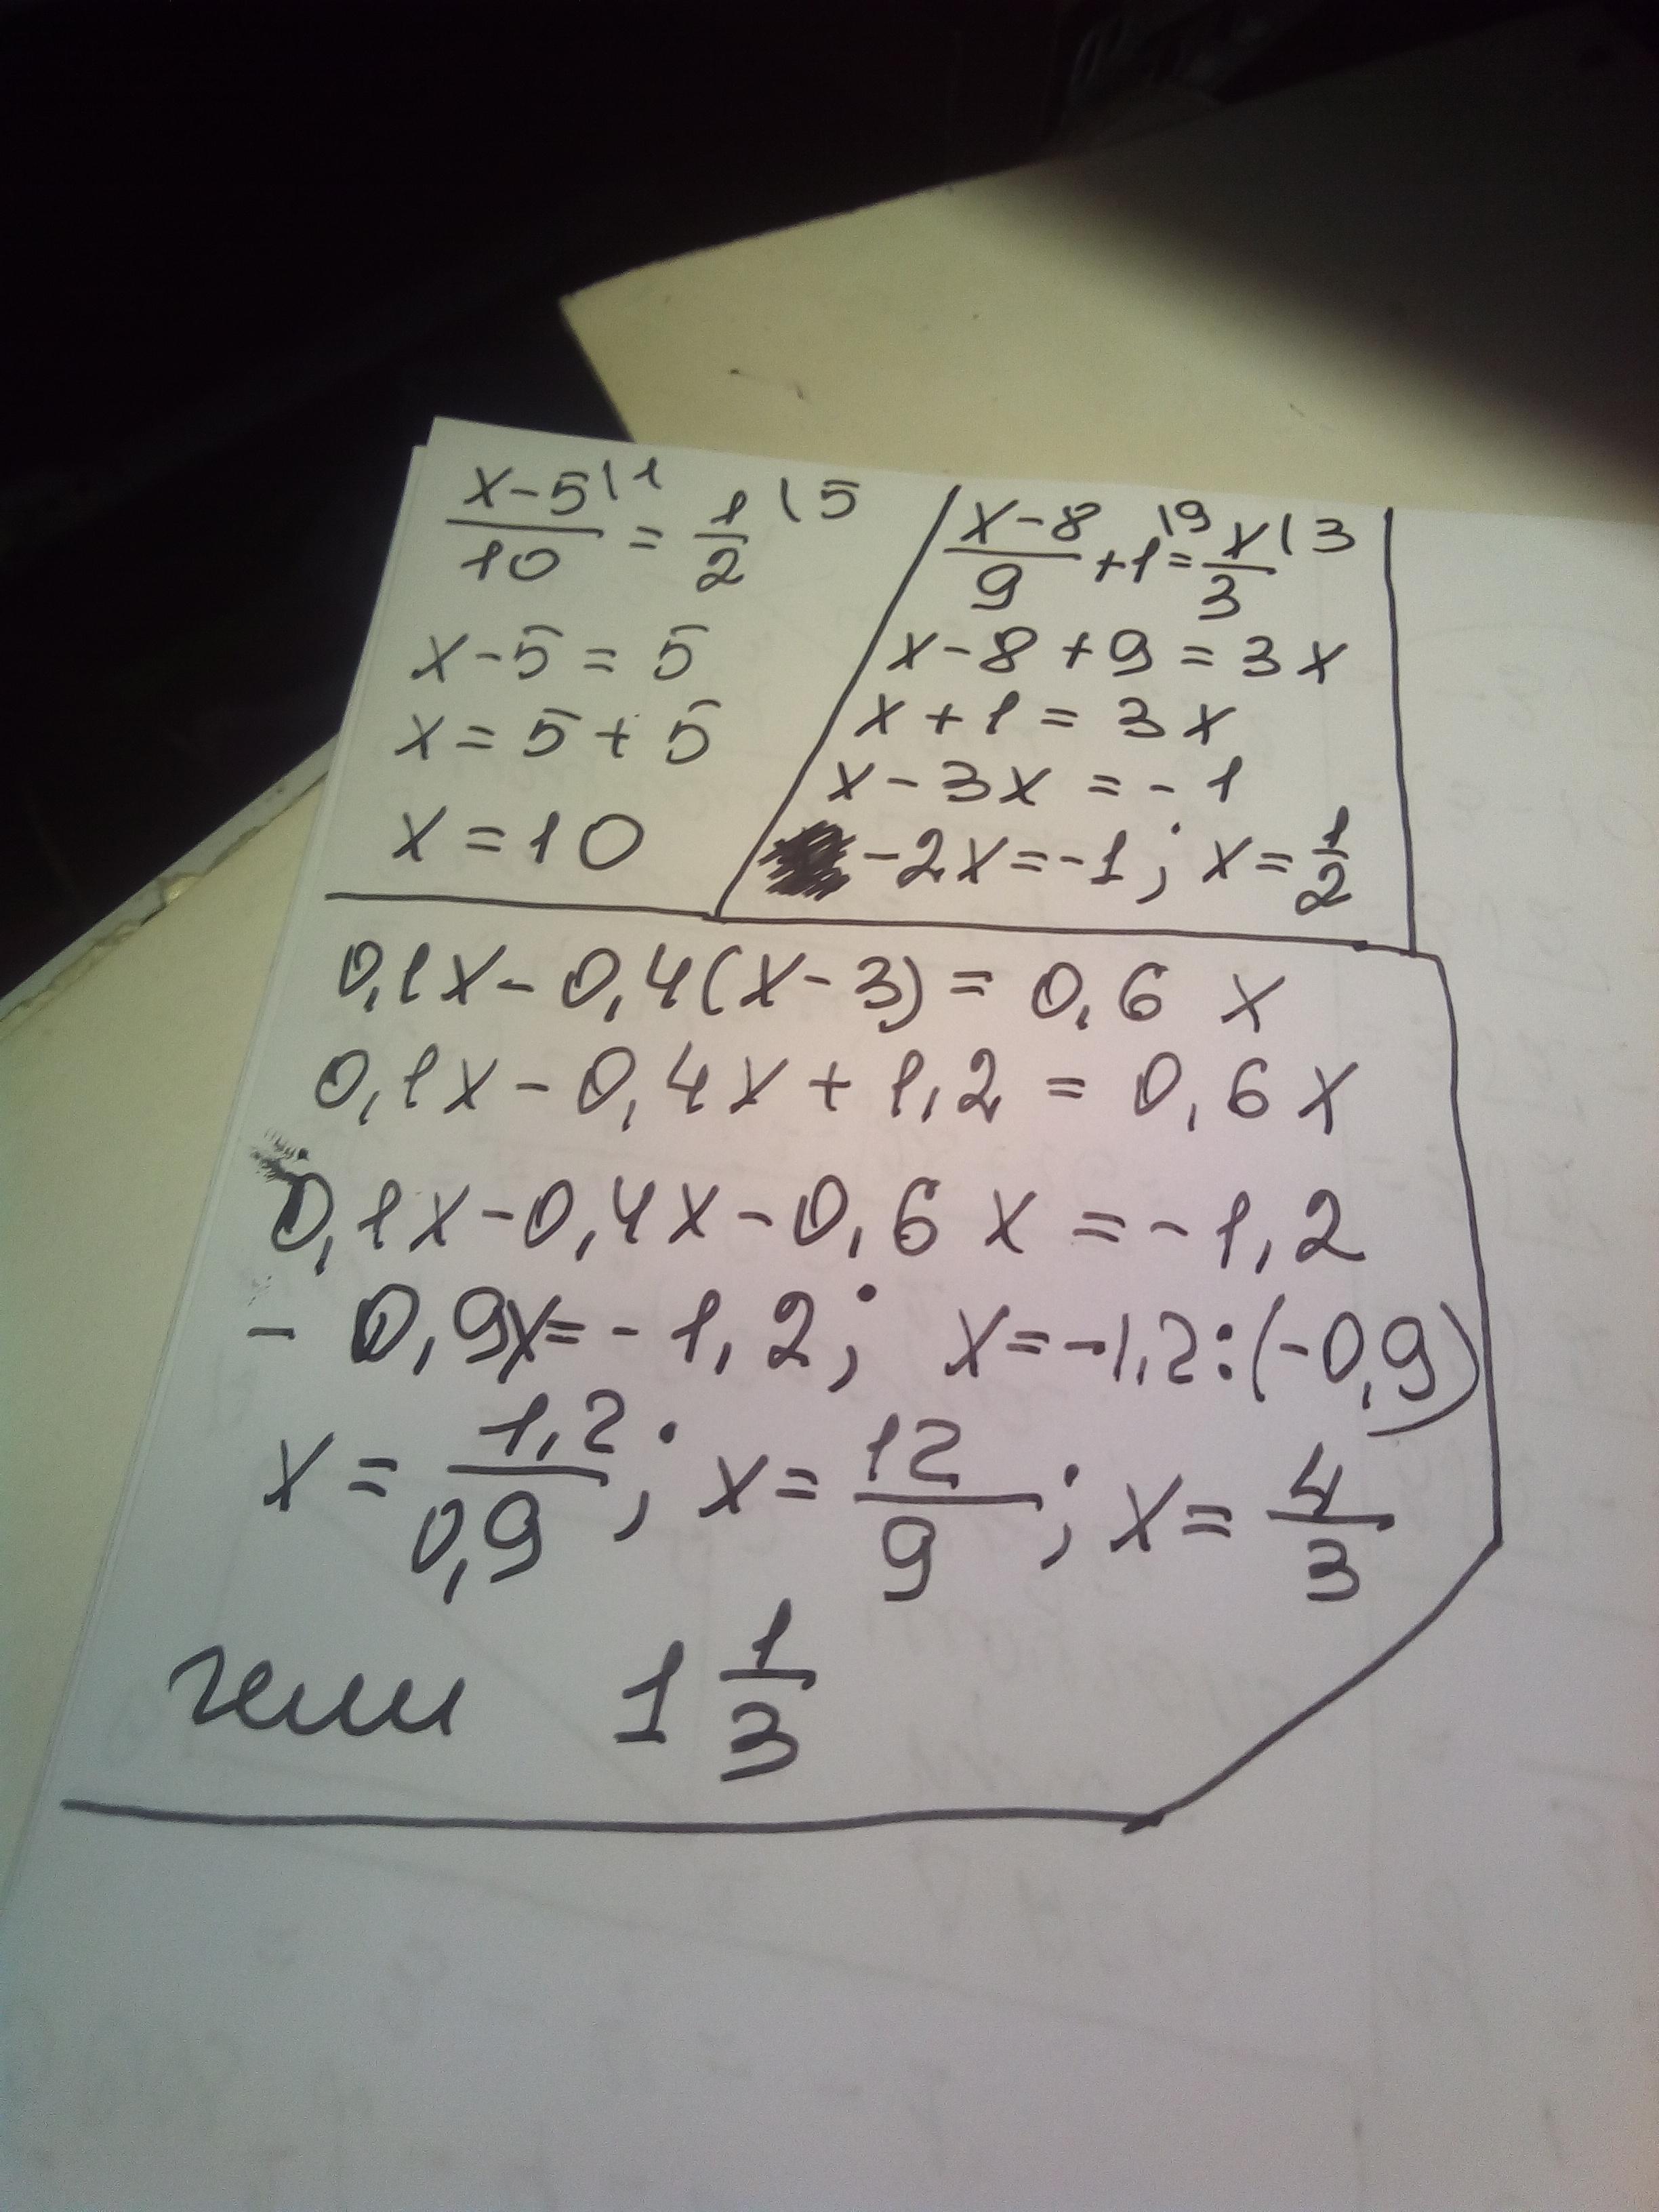 x-5\1/10 = 1/2 \5
x-5=5
x=5+5
x=10
x-8/9 +1\9 = x/3 \3
x-8+9=3x
x+1=3x
x-3x=-1
-2x=-1; x=1/2
0,1x-0,4(x-3)=0,6x
0,1x-0,4x+1,2=0,6x
0,1x-0,4x-0,6x=-1,2
-0,9x=-1,2; x=-1,2:(-0,9)
x=1,2/0,9; x=12/9; x=4/3
1 1/3